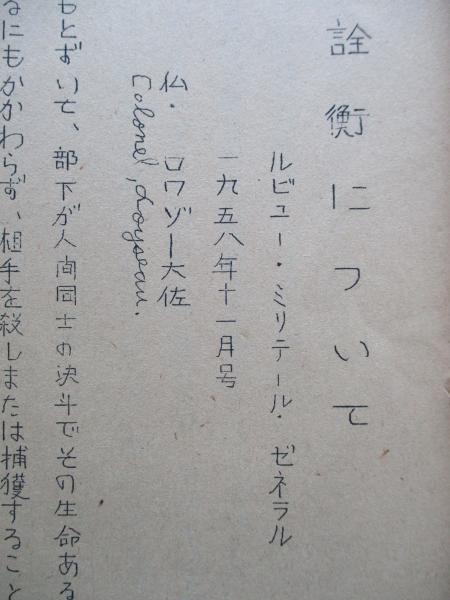 詮衡について
ルビュー・ミリテール・ゼネラル
一九五八年十一月号
仏・ロワゾー大佐
Colonel, Loyseau.
もとずいて、部下が人間同士の決斗でその生命ある
るにもかかわらず、相手を殺しまたは捕獲すること